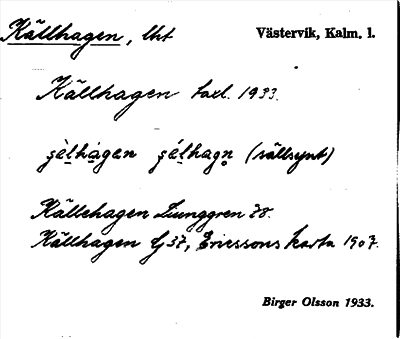 Källhagen, lht
Västervik, Kalm. l.
Källhagen taxl. 1933.
şèlhàgen şélhagn̥ (sällsynt)
Källehagen Ljunggren 78.
Källhagen Gj 37, Ericssons karta 1907.
Birger Olsson 1933.